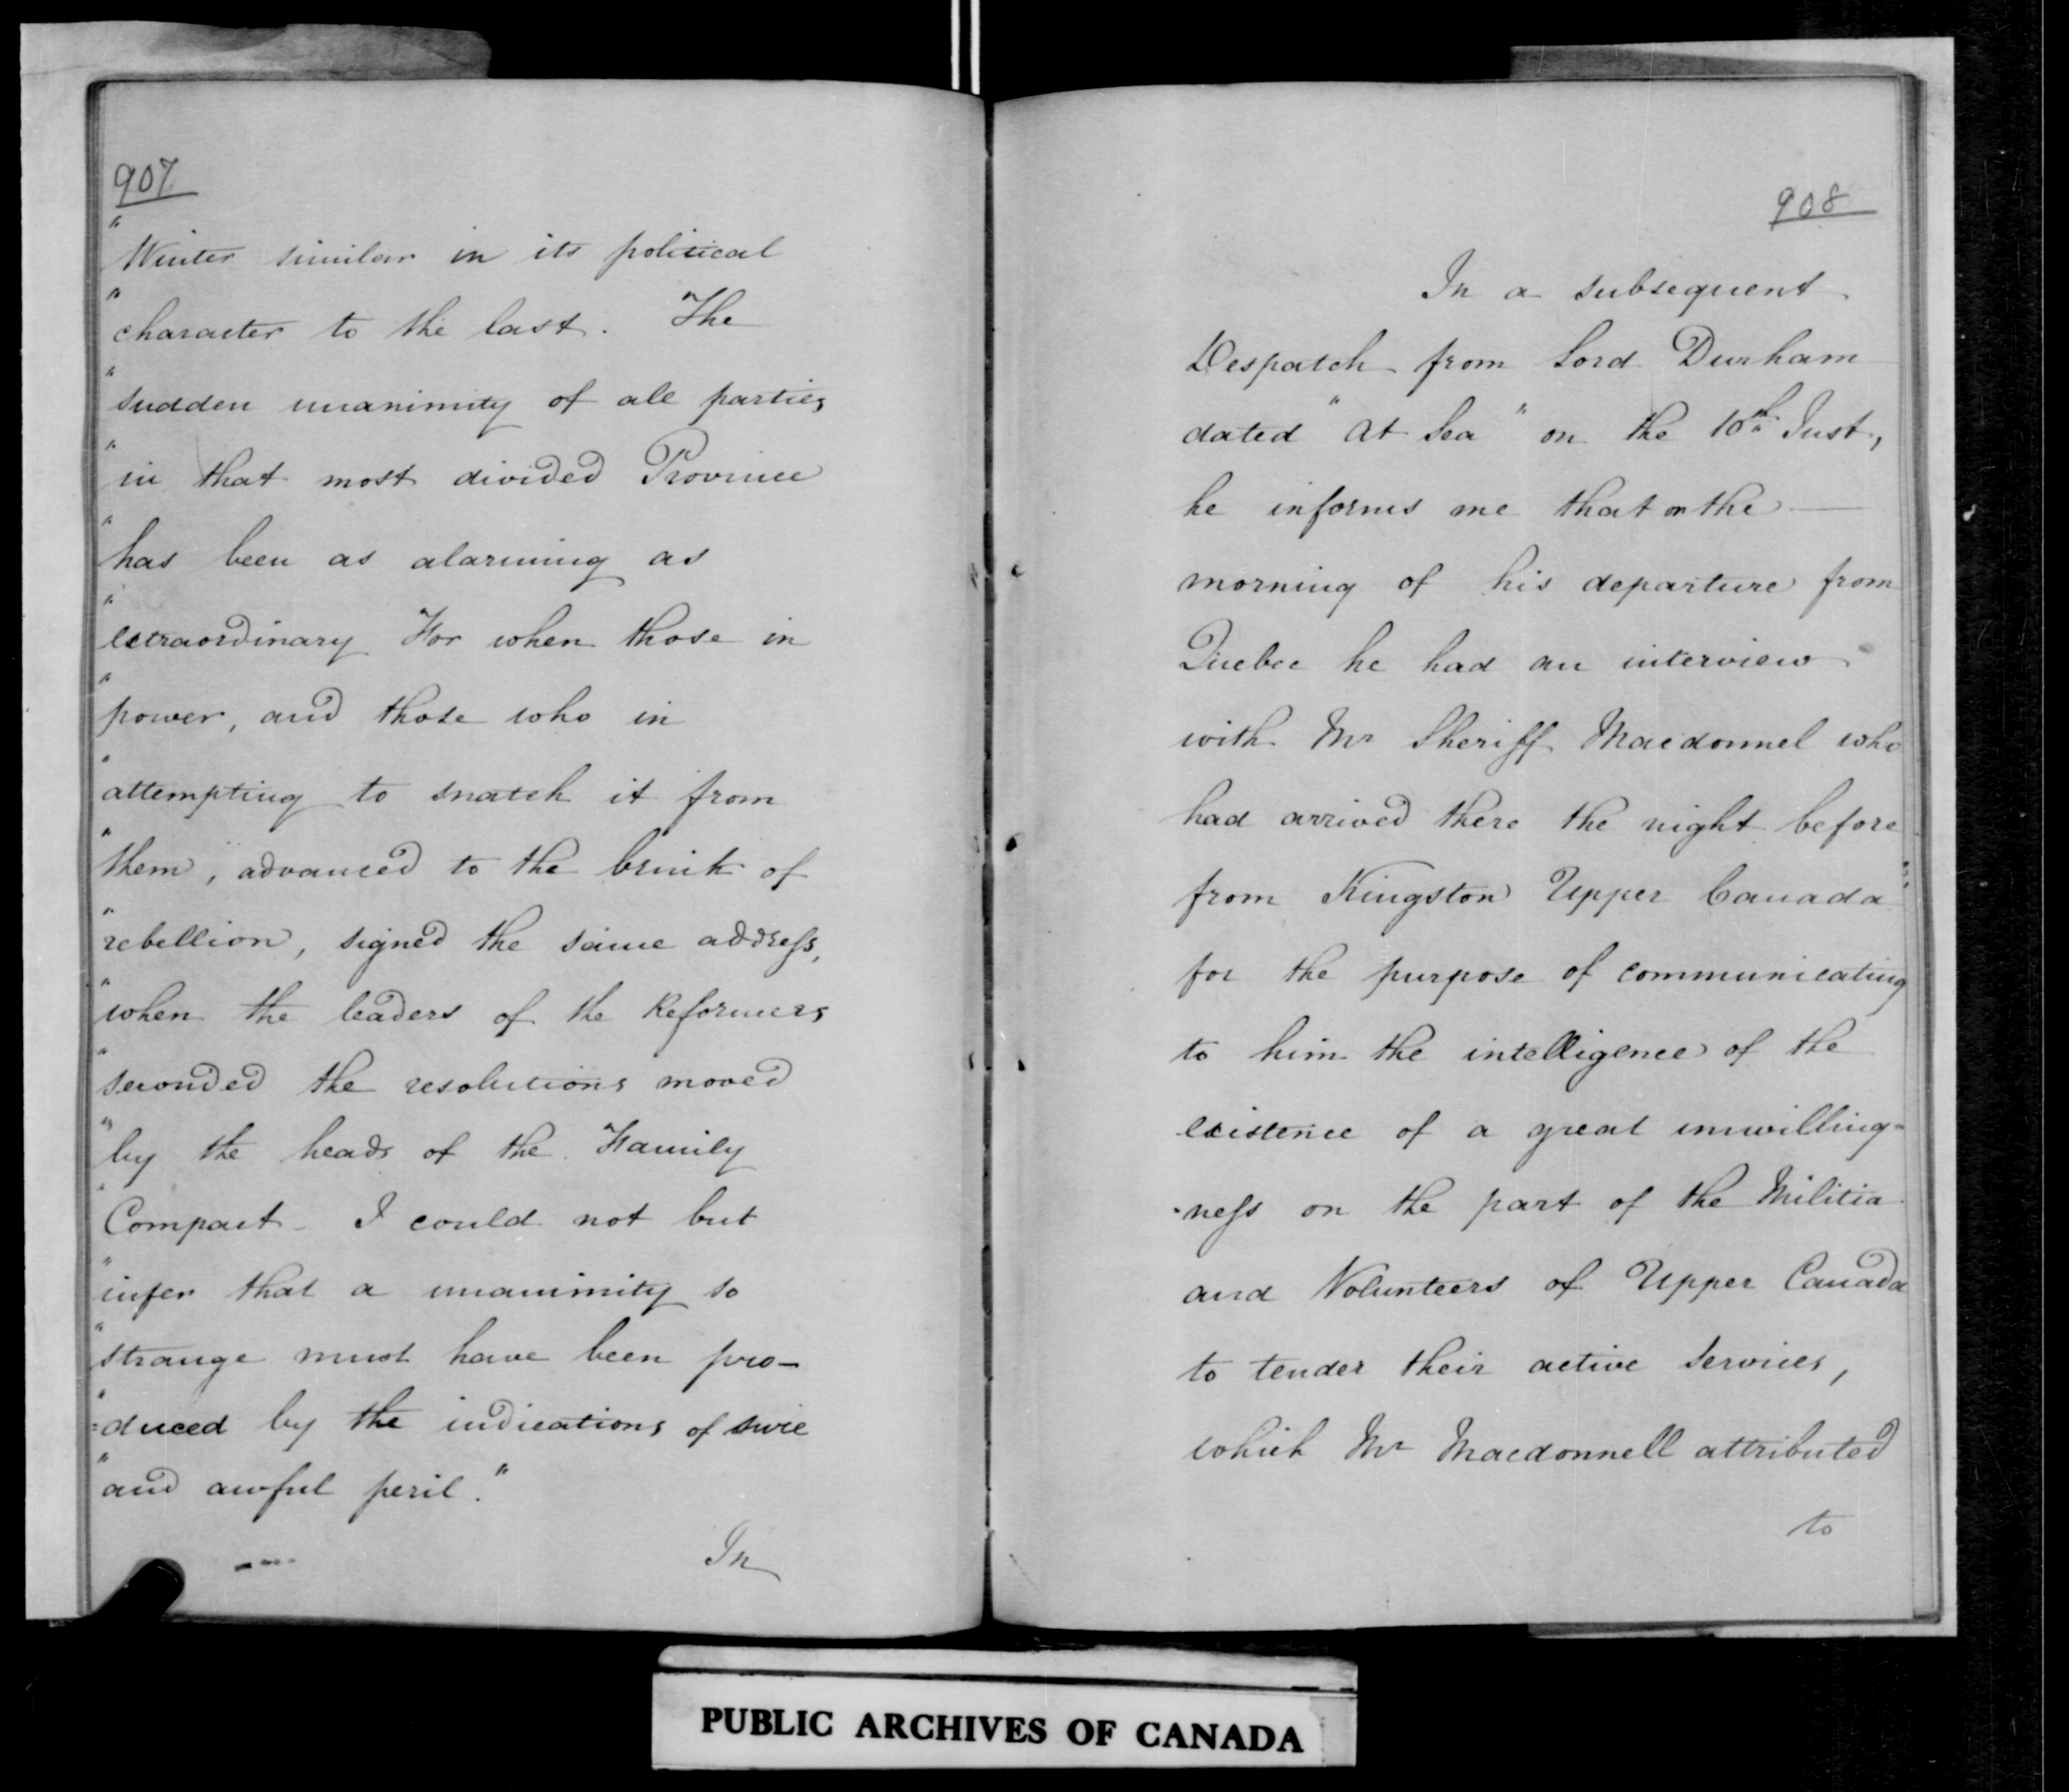 907
"Winter similar in its political
"character to the last. The
"sudden unanimity of all parties
"in that most divided Province
"has been as alarming as
"extraordinary For when those in
"power, and those who in
"attempting to snatch it from
"them, advanced to the brink of
"rebellion, signed the same address,
"when the leaders of the Reformers
"seconded the resolutions moved
"by the heads of the Family
"Compact - I could not but
"infer that a unanimity so
"strange must have been pro-
"=duced by the indications of sure
"and awful peril."
In
908
In a subsequent
Despatch from Lord Durham
dated "at Sea" on the 10th Inst,
he informs me that on the —
morning of his departure from
Quebec he had an interview
with Mr Sheriff Macdonnel who
had arrived there the night before
from Kingston Upper Canada
for the purpose of communicating
to him the intelligence of the
existence of a great unwilling=
=ness on the part of the Militia
and Volunteers of Upper Canada
to tender their active services,
which Mr Macdonnell attributed
to
PUBLIC ARCHIVES OF CANADA